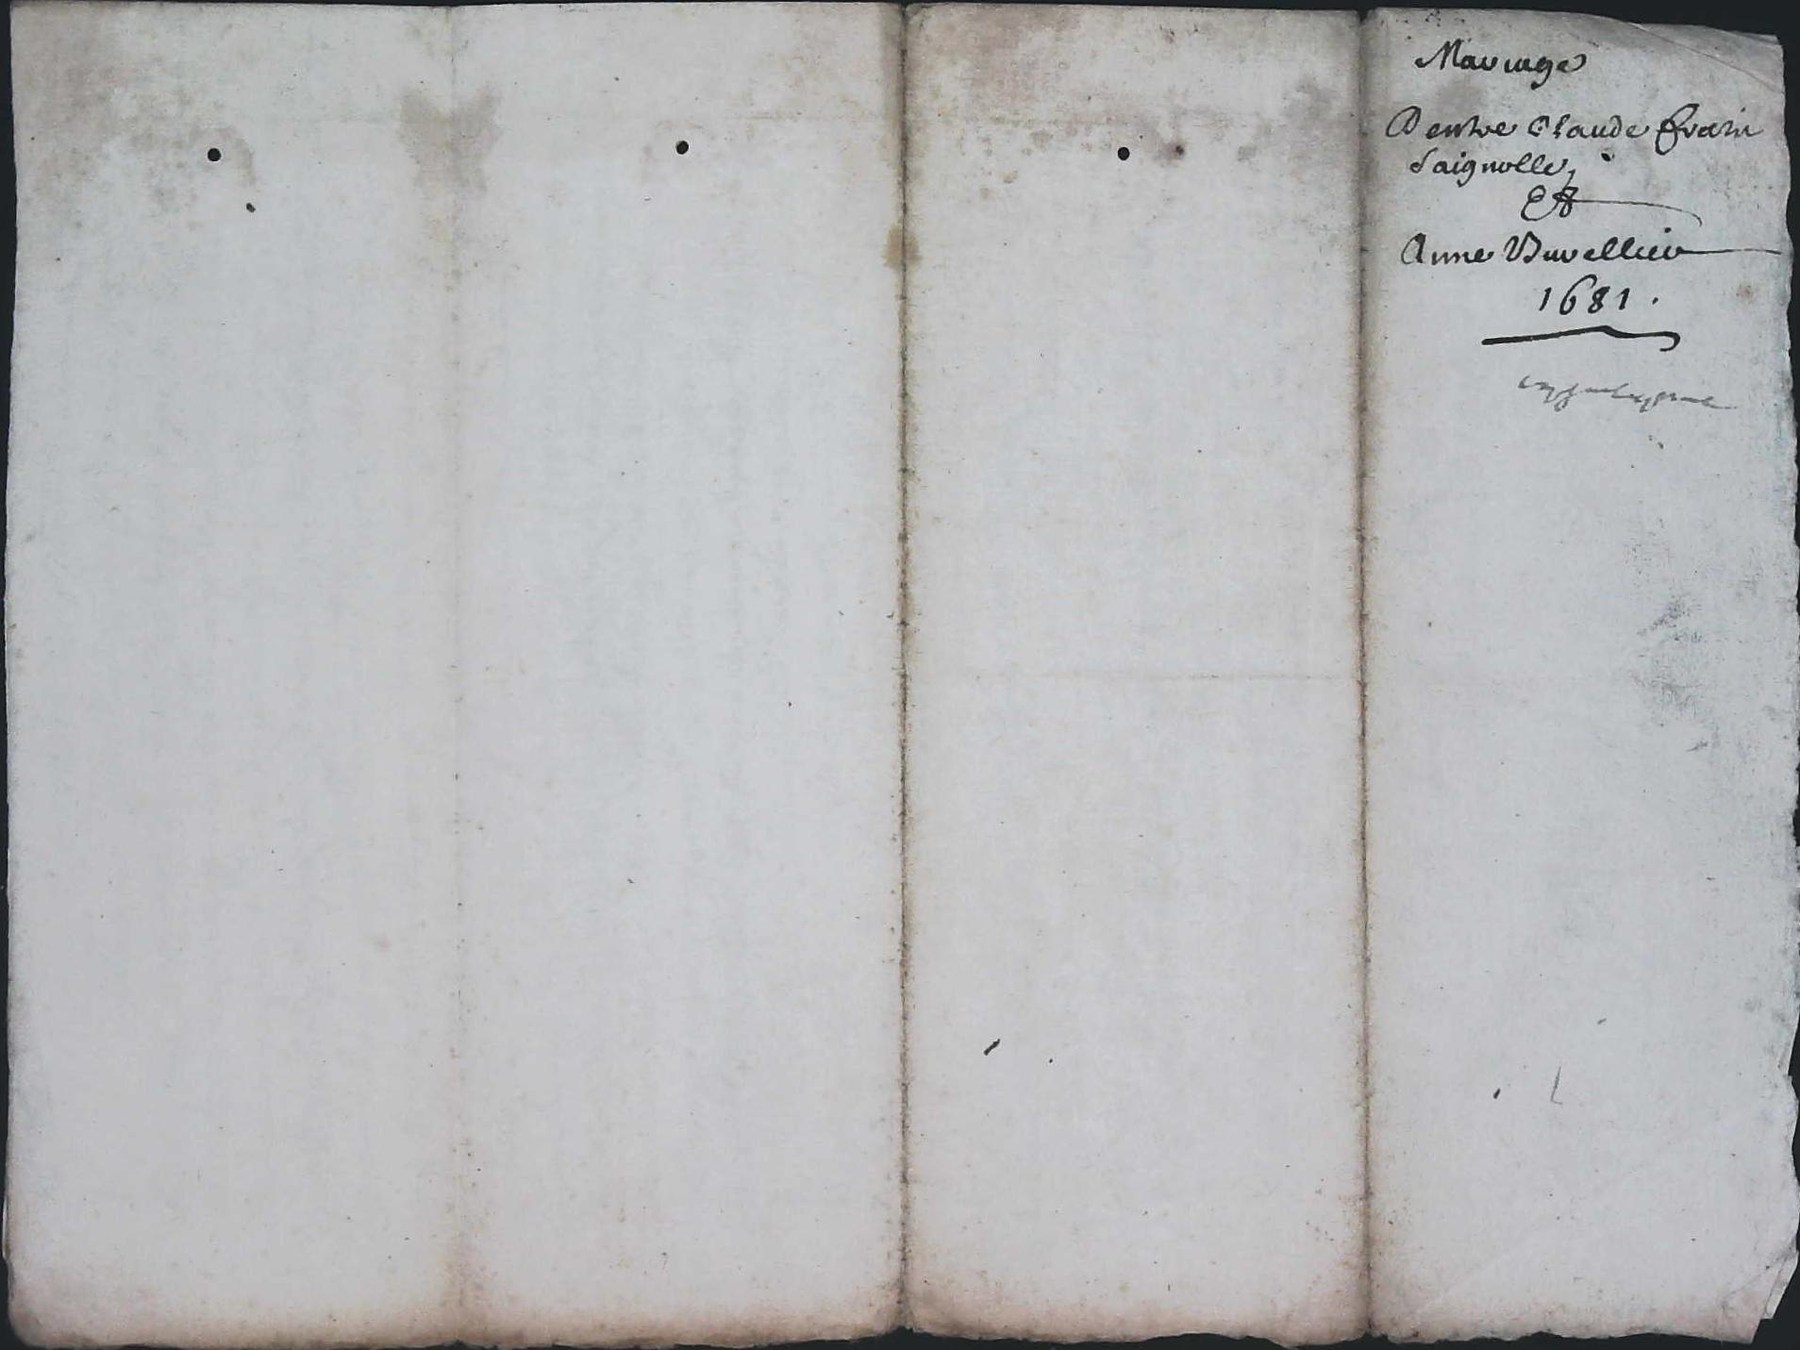 Mariage
Dentre Claude Erain
Saignolle,
Et
Anne Duvellier
1681.